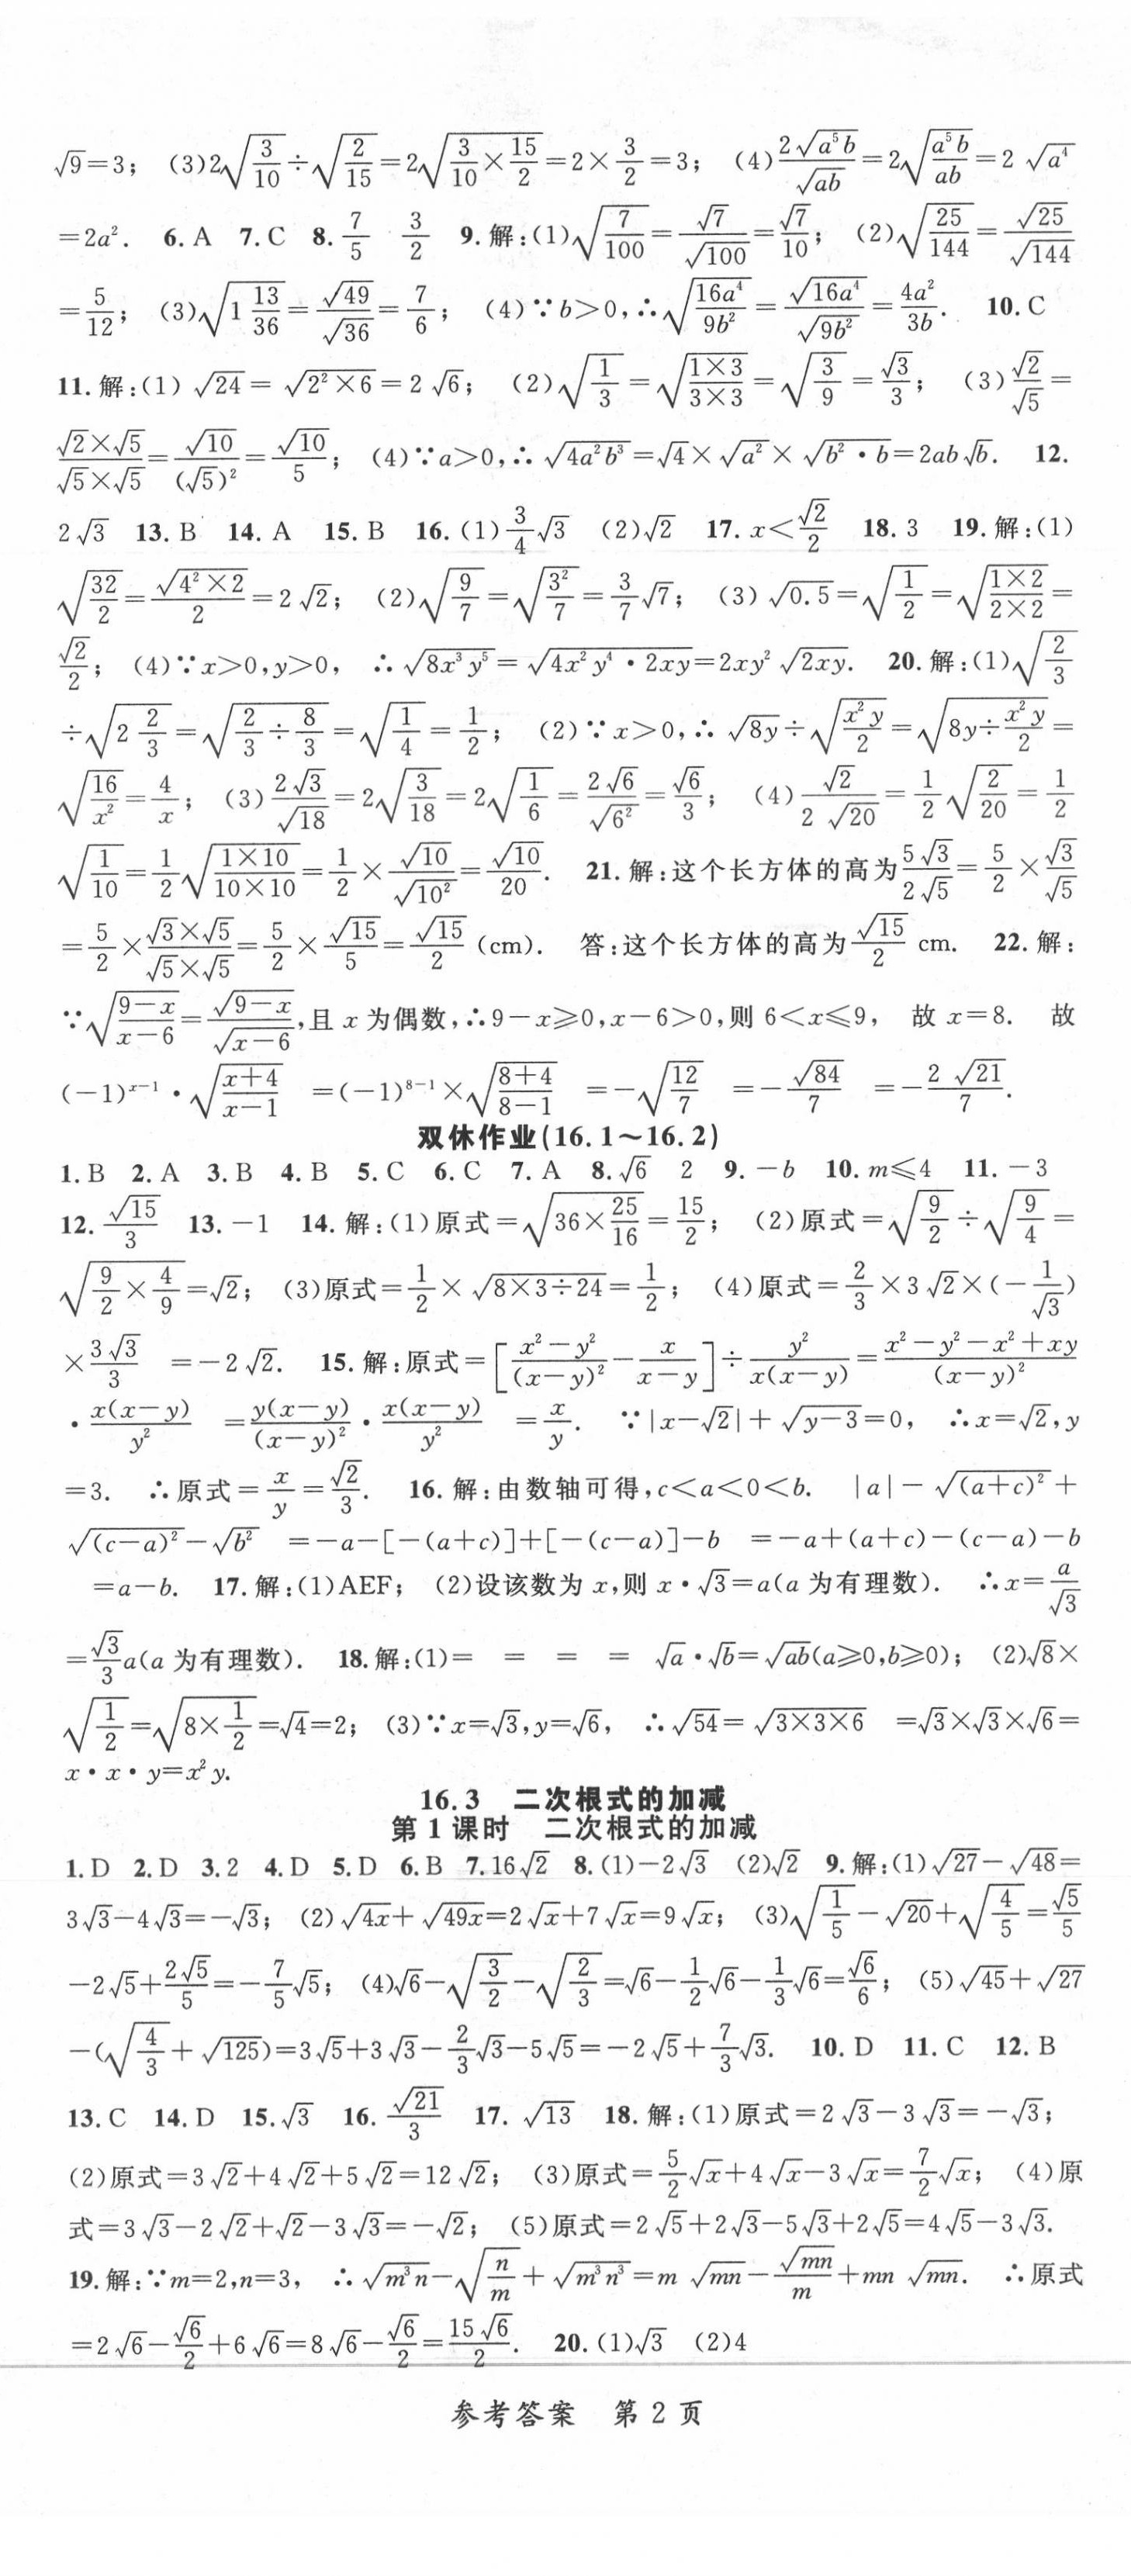 √9=3; (3)2√(3/10)÷√(2/15)=2√(3/10×15/2)=2×3/2=3; (4)2√(a⁵b)/√(ab)=2√(a⁵b/ab)=2√(a⁴)
=2a². 6.A 7.C 8.7/5 3/2 9.解:(1)√(7/100)=√7/√100=√7/10; (2)√(25/144)=√25/√144
=5/12; (3)√(1 13/36)=√49/√36=7/6; (4)∵b>0,∴√(16a⁴/9b²)=√(16a⁴)/√(9b²)=4a²/3b. 10.C
11.解:(1)√24=√(2²×6)=2√6; (2)√(1/3)=√((1×3)/(3×3))=√(3/9)=√3/3; (3)√2/√5=
(√2×√5)/(√5×√5)=√10/(√5)²=√10/5; (4)∵a>0,∴√(4a²b³)=√4×√(a²)×√(b²·b)=2ab√b. 12.
2√3 13.B 14.A 15.B 16.(1)3/4√3 (2)√2 17.x<√2/2 18.3 19.解:(1)
√(32/2)=√(4²×2)/2=2√2; (2)√(9/7)=√(3²/7)=3/7√7; (3)√0.5=√(1/2)=√((1×2)/(2×2))=
√2/2; (4)∵x>0,y>0, ∴√(8x³y⁵)=√(4x²y⁴·2xy)=2xy²√(2xy). 20.解:(1)√(2/3)
÷√(2 2/3)=√(2/3÷8/3)=√(1/4)=1/2; (2)∵x>0,∴√(8y)÷√(x²y/2)=√(8y÷x²y/2)=
√(16/x²)=4/x; (3)2√3/√18=2√(3/18)=2√(1/6)=2√6/√(6²)=√6/3; (4)√2/(2√20)=1/2√(2/20)=1/2
√(1/10)=1/2√((1×10)/(10×10))=1/2×√10/√(10²)=√10/20. 21.解:这个长方体的高为5√3/(2√5)=5/2×√3/√5
=5/2×(√3×√5)/(√5×√5)=5/2×√15/5=√15/2(cm). 答:这个长方体的高为√15/2 cm. 22.解:
∵√((9-x)/(x-6))=√(9-x)/√(x-6),且x为偶数,∴9-x≥0,x-6>0,则6<x≤9, 故x=8. 故
(-1)ˣ⁻¹·√((x+4)/(x-1)) =(-1)⁸⁻¹×√((8+4)/(8-1)) =-√(12/7) =-√84/7 =-2√21/7.
双休作业(16.1～16.2)
1.B 2.A 3.B 4.B 5.C 6.C 7.A 8.√6 2 9.-b 10.m≤4 11.-3
12.√15/3 13.-1 14.解:(1)原式=√(36×25/16)=15/2; (2)原式=√(9/2)÷√(9/4)=
√(9/2×4/9)=√2; (3)原式=1/2×√(8×3÷24)=1/2; (4)原式=2/3×3√2×(-1/√3)
×3√3/3 =-2√2. 15.解:原式=[(x²-y²)/(x-y)²-x/(x-y)]÷y²/(x(x-y))=(x²-y²-x²+xy)/(x-y)²
·x(x-y)/y² =y(x-y)/(x-y)²·x(x-y)/y² =x/y. ∵|x-√2|+√(y-3)=0, ∴x=√2,y
=3. ∴原式=x/y=√2/3. 16.解:由数轴可得,c<a<0<b. |a|-√((a+c)²)+
√((c-a)²)-√(b²) =-a-[-(a+c)]+[-(c-a)]-b =-a+(a+c)-(c-a)-b
=a-b. 17.解:(1)AEF; (2)设该数为x,则x·√3=a(a为有理数). ∴x=a/√3
=√3/3a(a为有理数). 18.解:(1)= = = = √a·√b=√(ab)(a≥0,b≥0); (2)√8×
√(1/2)=√(8×1/2)=√4=2; (3)∵x=√3,y=√6, ∴√54=√(3×3×6) =√3×√3×√6=
x·x·y=x²y.
16.3 二次根式的加减
第1课时 二次根式的加减
1.D 2.D 3.2 4.D 5.D 6.B 7.16√2 8.(1)-2√3 (2)√2 9.解:(1)√27-√48=
3√3-4√3=-√3; (2)√(4x)+√(49x)=2√x+7√x=9√x; (3)√(1/5)-√20+√(4/5)=√5/5
-2√5+2√5/5=-7/5√5; (4)√6-√(3/2)-√(2/3)=√6-1/2√6-1/3√6=√6/6; (5)√45+√27
-(√(4/3)+√125)=3√5+3√3-2/3√3-5√5=-2√5+7/3√3. 10.D 11.C 12.B
13.C 14.D 15.√3 16.√21/3 17.√13 18.解:(1)原式=2√3-3√3=-√3;
(2)原式=3√2+4√2+5√2=12√2; (3)原式=5/2√x+4√x-3√x=7/2√x; (4)原
式=3√3-2√2+√2-3√3=-√2; (5)原式=2√5+2√3-5√3+2√5=4√5-3√3.
19.解:∵m=2,n=3, ∴√(m³n)-√(n/m)+√(m³n³)=m√(mn)-√(mn)/m+mn√(mn). ∴原式
=2√6-√6/2+6√6=8√6-√6/2=15√6/2. 20.(1)√3 (2)4
参考答案 第2页